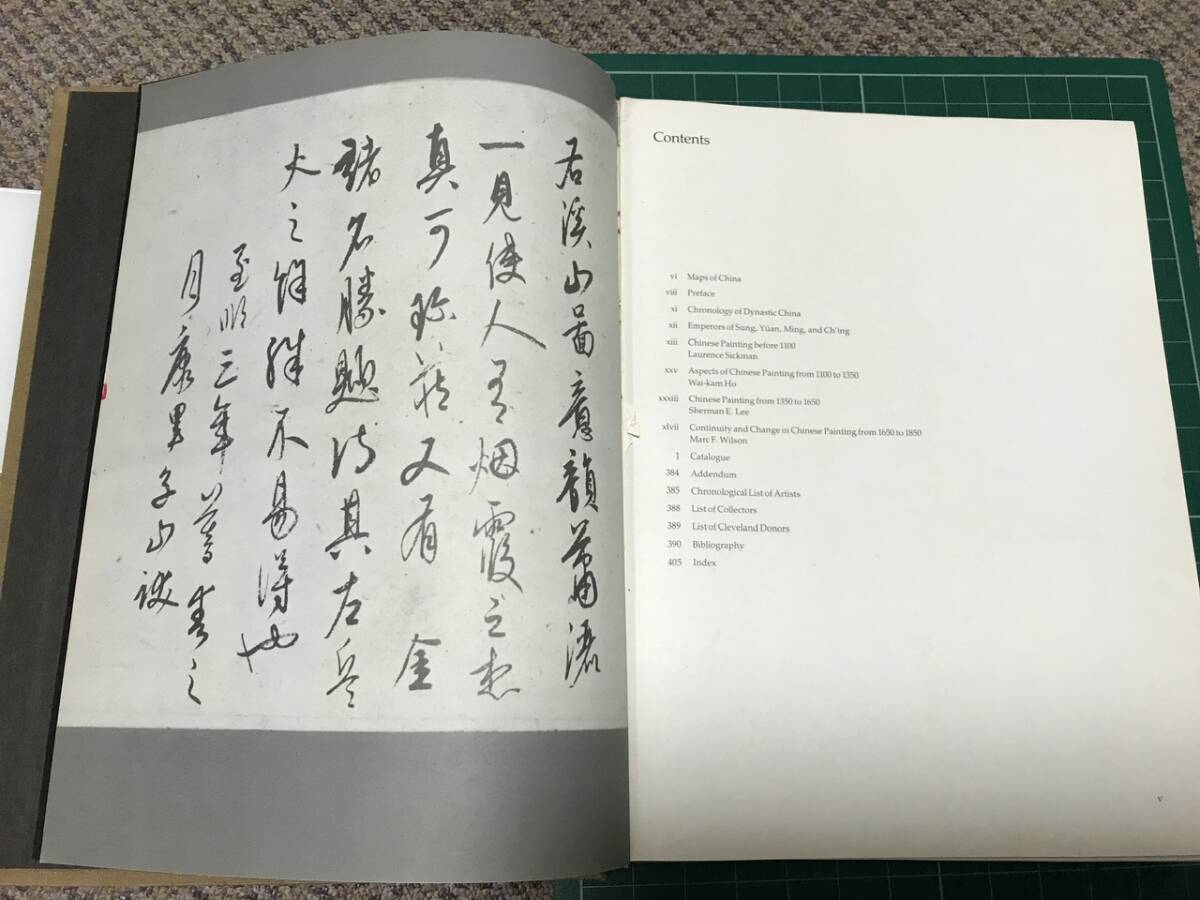 右溪山圖意韻蕭灑
一見使人有烟霞之想
真可珍藏又有金
諸名勝題詩其左兵
火之餘殊不易得也
至順三年暮春之
月康里子山
Contents
vi Maps of China
viii Preface
xi Chronology of Dynastic China
xii Emperors of Sung, Yüan, Ming, and Ch'ing
xiii Chinese Painting before 1100
Laurence Sickman
xxv Aspects of Chinese Painting from 1100 to 1350
Wai-kam Ho
xxxiii Chinese Painting from 1350 to 1650
Sherman E. Lee
xlvii Continuity and Change in Chinese Painting from 1650 to 1850
Marc F. Wilson
1 Catalogue
384 Addendum
385 Chronological List of Artists
388 List of Collectors
389 List of Cleveland Donors
390 Bibliography
405 Index
v